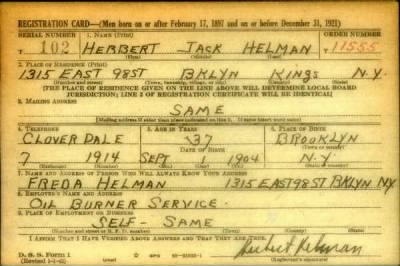 REGISTRATION CARD—(Men born on or after February 17, 1897 and on or before December 31, 1921)
SERIAL NUMBER 1. NAME (Print) ORDER NUMBER
T 102 HERBERT JACK HELMAN 11555
(First) (Middle) (Last)
2. PLACE OF RESIDENCE (Print)
1315 EAST 98ST BKLYN KINGS N.Y.
(Number and street) (Town, township, village, or city) (County) (State)
[THE PLACE OF RESIDENCE GIVEN ON THE LINE ABOVE WILL DETERMINE LOCAL BOARD
JURISDICTION; LINE 2 OF REGISTRATION CERTIFICATE WILL BE IDENTICAL]
3. MAILING ADDRESS
SAME
[Mailing address if other than place indicated on line 2. If same insert word same]
4. TELEPHONE 5. AGE IN YEARS 6. PLACE OF BIRTH
CLOVERDALE 37 BROOKLYN
DATE OF BIRTH
7 1914 SEPT 1 1904 N.Y.
7. NAME AND ADDRESS OF PERSON WHO WILL ALWAYS KNOW YOUR ADDRESS
FREDA HELMAN 1315 EAST 98ST BKLYN N.Y.
8. EMPLOYER'S NAME AND ADDRESS
OIL BURNER SERVICE
9. PLACE OF EMPLOYMENT OR BUSINESS
SELF- SAME
I AFFIRM THAT I HAVE VERIFIED ABOVE ANSWERS AND THAT THEY ARE TRUE.
D. S. S. Form 1
(Revised 1-1-42) Herbert Helman
(Registrant's signature)